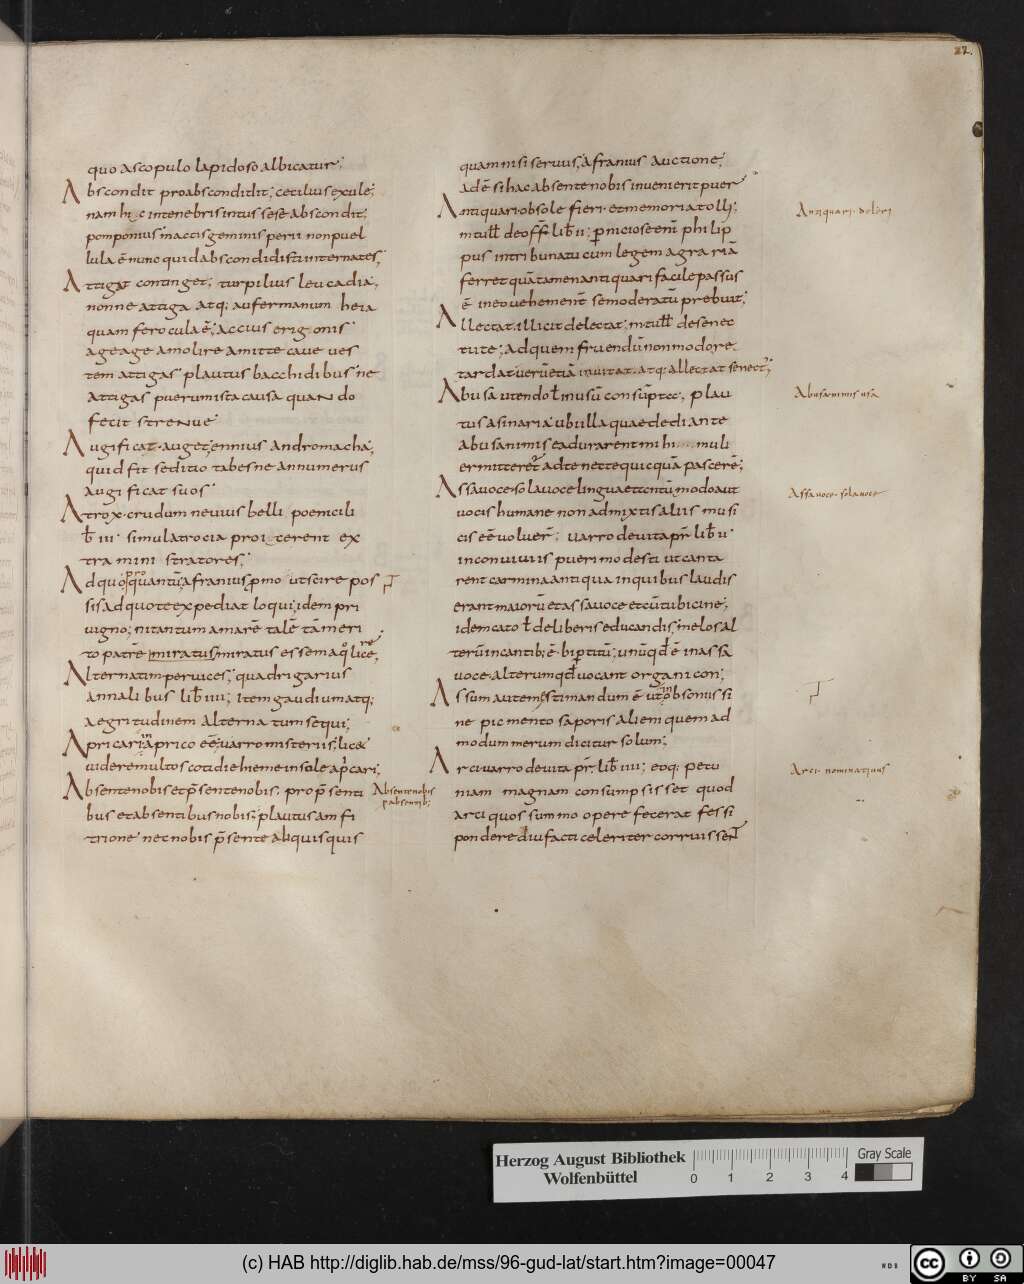 22.
quo ascopulo lapidoso albicatur;
Abscondit pro abscondidit; cecilius exule;
nam hi c intenebris intus sese abscondit;
pomponius inactis geminis perii non puel
lula ē nunc quid abscondidisti internates;
Attigat continget; turpilius leucadia;
nonne attiga atq; aufer manum heia
quam ferocula ē; Accius erigonis
age age amolire amitte cave ves
tem attigas plautus bacchidibus ne
attigas puerum ista causa quando
fecit strenue
Augificat augetennius andromacha;
quid fit seditio tabesne an numerus
augificat suos
Atrox crudum nevius belli poenicili
ƀ iii simul atrocia proicerent ex
tra mini stratores;
afranius
sis ad quote expediat loqui; idem pri
vigno; ni tantum amarē talē tā meri
to patrē miratus miratus
Alternatim per vices; quadrigarius
annalibus liƀ iiii; item gaudium atq;
aegritudinem alternatum sequi;
Apricari in aprico eē; varro misteriis;
videre multos cotidie hieme in sole apricari;
Absente nobis et p̄sente nobis. pro p̄senti
bus et absentibus nobis; plautus amfi
trione nec nobis p̄sente aliquis quis
Absente nobis
p absentib;
quam nisi servus; afranius auctione;
adē si hac absente nobis invenerit puer
Antiquari obsolefieri et memoria tolli;
m tull de off liƀ ii; perniciose enim philip
pus in tribunatu cum legem agrariā
ferret quā tamen antiquari facile passus
ē in eo vehement se moderatū prebuit;
Allectat illicit delectat; m tull de senec
tute; ad quem fruendū non modo re
tardat verū etiā invitat atq; allectat senect;
Abusa utendo ł in usū consūpta; plau
tus asinaria ubi illa quae dedi ante
abusa nimis ea durarent mihi muli
er mitteret ad te nec te quicquā poscerē;
Assa voce sola voce lingua et cntū modo aut
vocis humane non admixtis aliis musi
cis eē voluer; varro de vita pr̄ liƀ ii
in conviviis pueri modesti ut canta
rent carmina antiqua in quibus laudis
erant maiorū et assa voce et cū tubicine;
idem cato ł de liberis educandis; melos al
terū in cantib; ē bipertitū; unū qđ ē in assa
voce alterum qđ vocant organicon;
Assum autem estimandum ē
ne picmento saporis aliem quem ad
modum merum dicitur solum;
Arci varro de vita pr̄ liƀ iiii; eoq; pecu
niam magnam consumpsisset quod
arci quos summo opere fecerat fessi
pondere diu facti celeriter corruissent
Antiquari. deleri
Abusa nimis usa
Assa voce. sola voce
Arci. nominativus
Herzog August Bibliothek
Wolfenbüttel
0 1 2 3 4
Gray Scale
(c) HAB http://diglib.hab.de/mss/96-gud-lat/start.htm?image=00047
WDB
cc BY SA